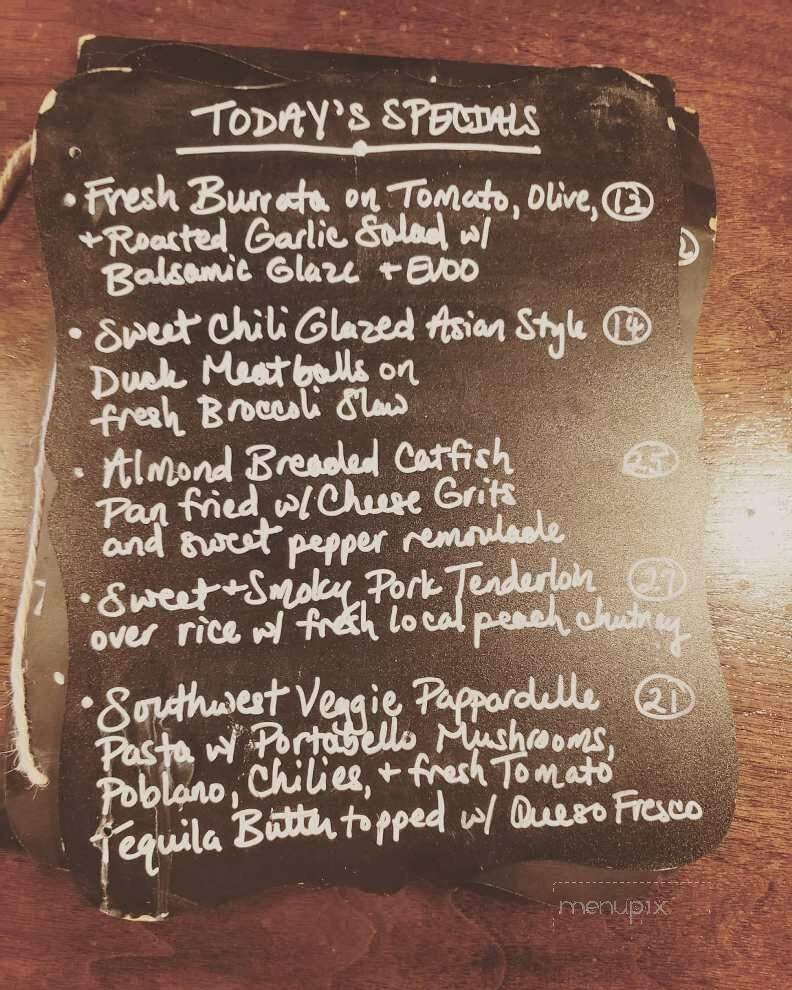 TODAY'S SPECIALS
• Fresh Burrata on Tomato, Olive, 13
+ Roasted Garlic Salad w/
Balsamic Glaze + EVOO
• Sweet Chili Glazed Asian Style 14
Duck Meatballs on
fresh Broccoli Slaw
• Almond Breaded Catfish 25
Pan fried w/ Cheese Grits
and sweet pepper remoulade
• Sweet + Smoky Pork Tenderloin 27
over rice w/ fresh local peach chutney
• Southwest Veggie Pappardelle 21
Pasta w/ Portabello Mushrooms,
Poblano, Chilies, + fresh Tomato
Tequila Butter topped w/ Queso Fresco
menupix